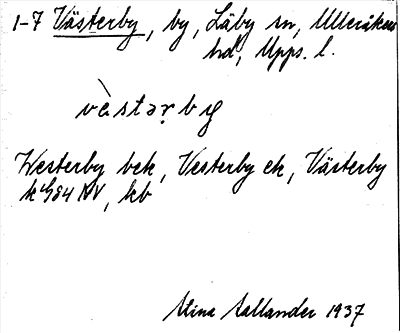 1-7 Västerby, by, Läby sn, Ulleråkers
hd, Upps. l.
vὲstəṛby
Westerby bek, Vesterby ek, Västerby
k GS4 NV, kb
Stina Aallander 1937